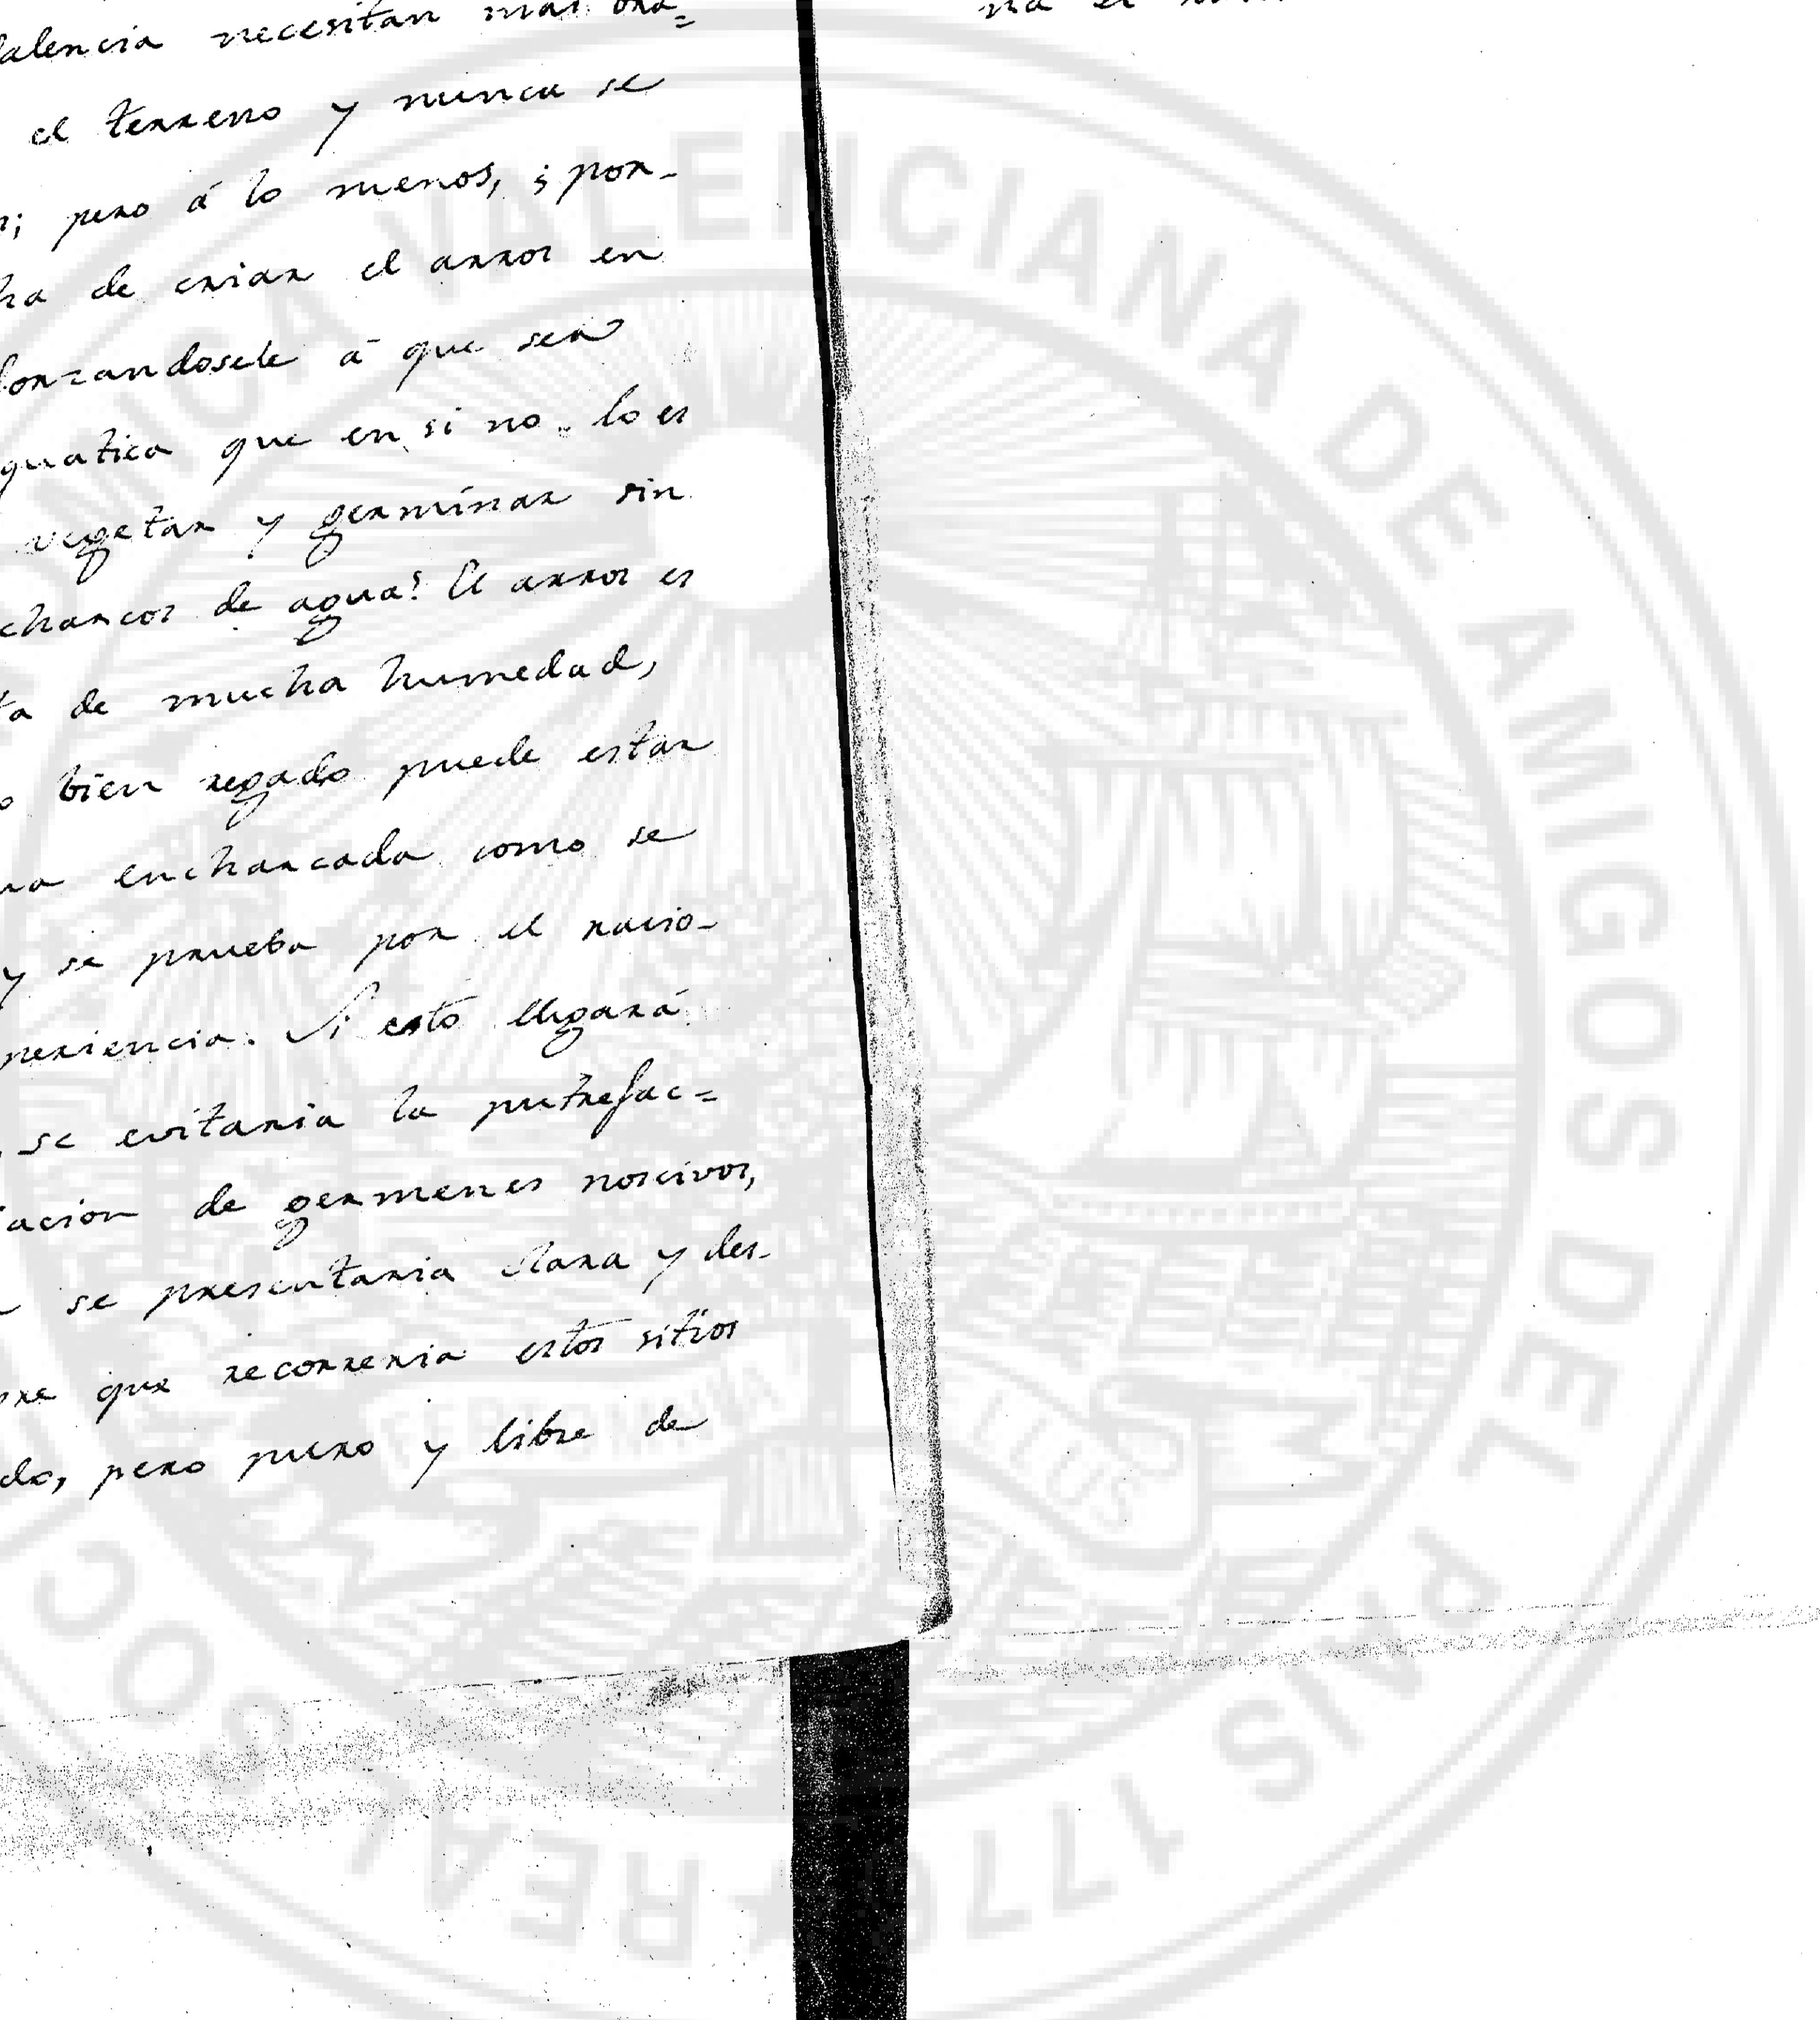 alencia necesitan mas
el terreno y nunca se
; pero á lo menos, ¿por-
ha de criar el arroz en
forzandosele á que sea
quatica que en si no lo es
vegetar y germinar sin
charcos de agua? El arroz es
ta de mucha humedad,
bien regado puede estar
enharcada como se
y se prueba por el racio-
periencia. Si esto llegará
se evitaria la putrefac=
acion de germenes noscivos,
se presentaria clara y des-
que recorreria estos sitios
do, pero puro y libre de
VALENCIANA DE AMIGOS DEL PAIS 1776 ★ REAL